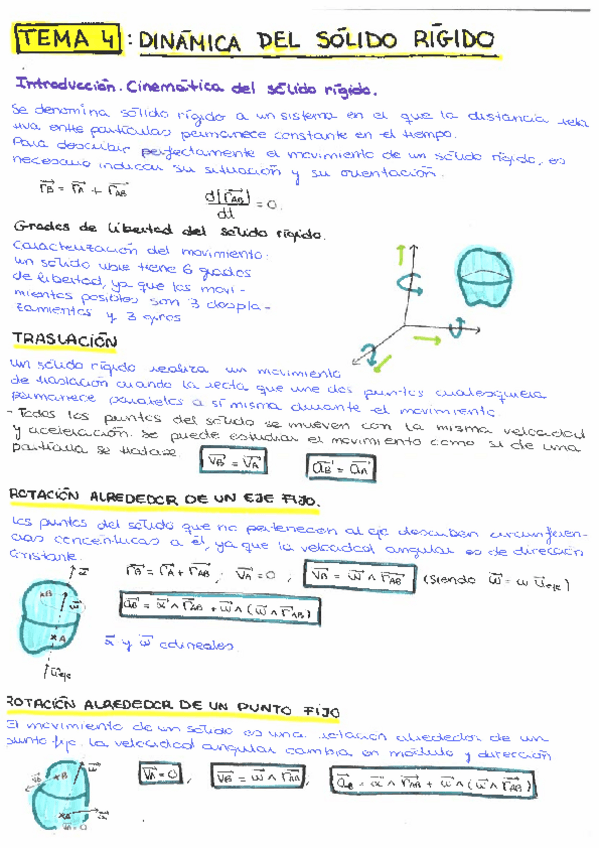 TEMA 4 : DINÁMICA DEL SÓLIDO RÍGIDO
Introducción. Cinemática del sólido rígido.
Se denomina sólido rígido a un sistema en el que la distancia rela
tiva entre partículas permanece constante en el tiempo.
Para describir perfectamente el movimiento de un sólido rígido, es
necesario indicar su situación y su orientación.
r⃗B = r⃗A + r⃗AB    d|r⃗AB|/dt = 0.
Grados de libertad del sólido rígido.
Caracterización del movimiento:
un sólido libre tiene 6 grados
de libertad, ya que los movi-
mientos posibles son 3 despla-
zamientos y 3 giros
TRASLACIÓN
Un sólido rígido realiza un movimiento
de traslación cuando la recta que une dos puntos cualesquiera
permanece paralelos a sí misma durante el movimiento
- Todos los puntos del sólido se mueven con la misma velocidad
y aceleración. Se puede estudiar el movimiento como si de una
partícula se tratase    v⃗B = v⃗A    a⃗B = a⃗A
ROTACIÓN ALREDEDOR DE UN EJE FIJO.
Los puntos del sólido que no pertenecen al eje describen circunferen-
cias concéntricas a él, ya que la velocidad angular es de dirección
constante.
r⃗B = r⃗A + r⃗AB ; v⃗A = 0 , v⃗B = ω⃗ ∧ r⃗AB (siendo ω⃗ = ω u⃗eje)
a⃗B = α⃗ ∧ r⃗AB + ω⃗ ∧ (ω⃗ ∧ r⃗AB)
α⃗ y ω⃗ colineales.
α⃗
xB
ω⃗
xA
u⃗eje
ROTACIÓN ALREDEDOR DE UN PUNTO FIJO
El movimiento de un sólido es una rotación alrededor de un
punto fijo. La velocidad angular cambia en módulo y dirección
v⃗A = 0 , v⃗B = ω⃗ ∧ r⃗AB , a⃗B = α⃗ ∧ r⃗AB + ω⃗ ∧ (ω⃗ ∧ r⃗AB)
v⃗B
xB
ω⃗
xA
v⃗A = 0